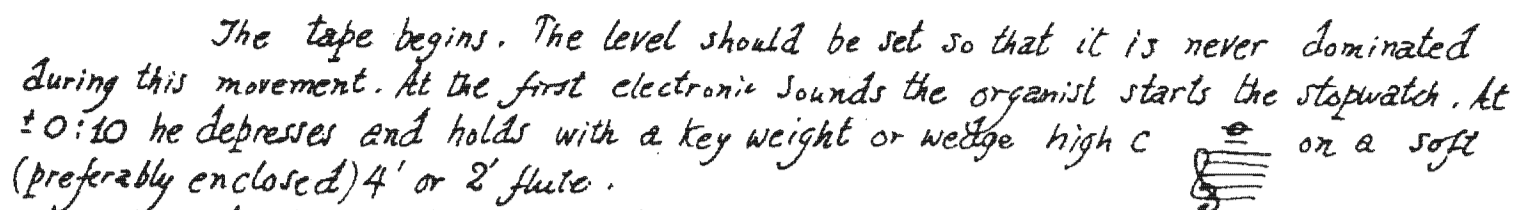 The tape begins. The level should be set so that it is never dominated
during this movement. At the first electronic sounds the organist starts the stopwatch. At
± 0:10 he depresses and holds with a key weight or wedge high C on a soft
(preferably enclosed) 4' or 2' flute.